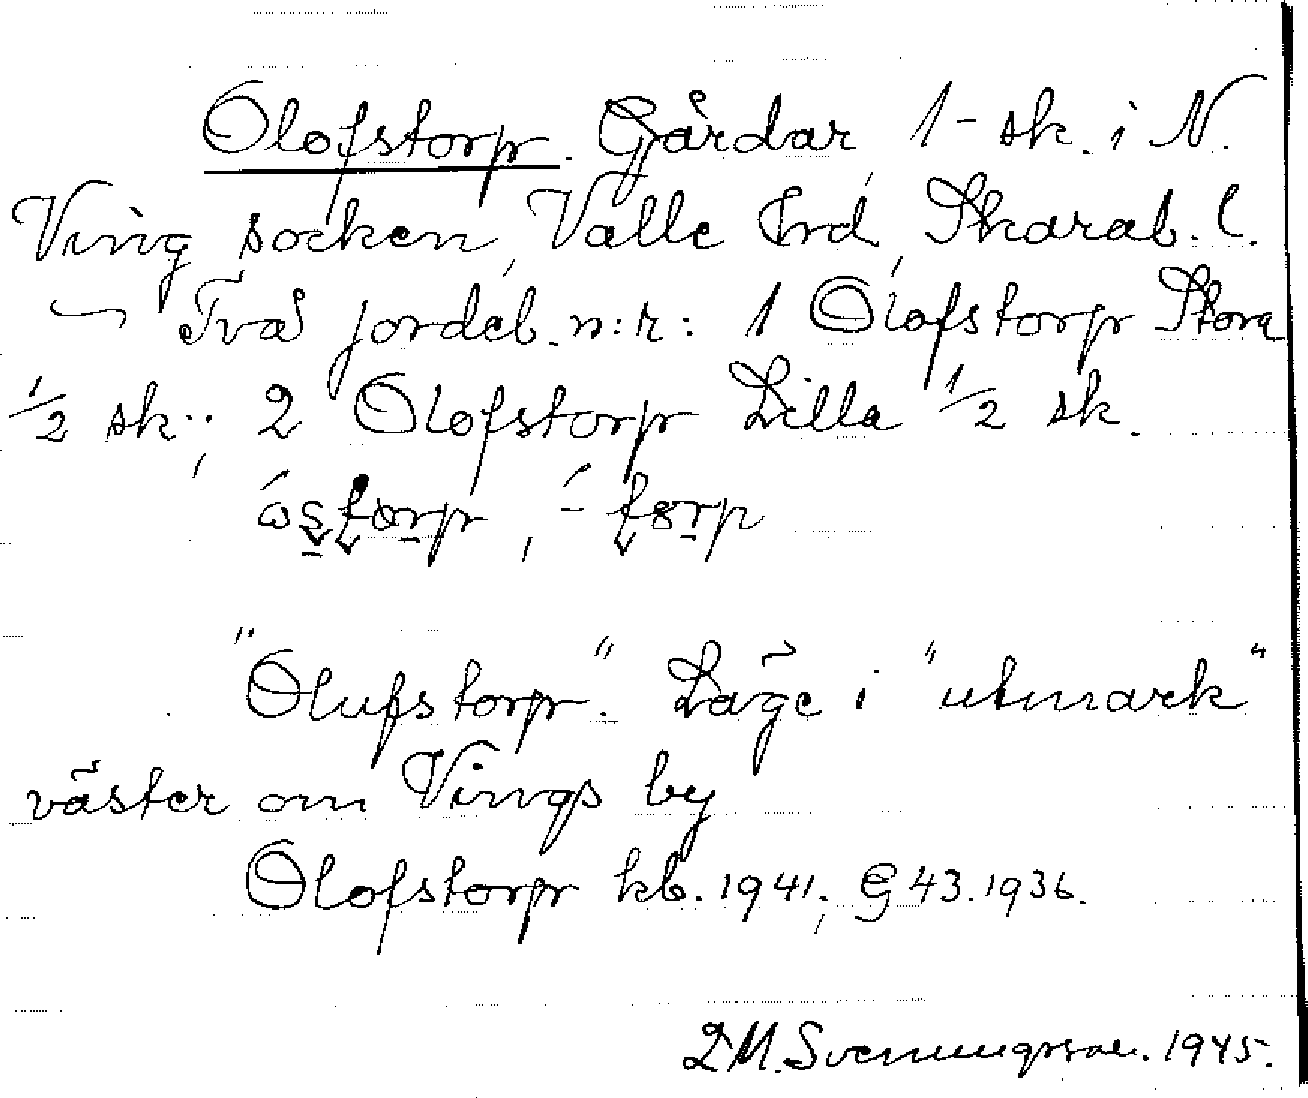 Olofstorp. Gårdar, 1 - sk. i N.
Ving socken, Valle hrd, Skarab. l.
~ Två jordeb. n:r: 1 Olofstorp Stora
1/2 sk.; 2 Olofstorp Lilla 1/2 sk.
"Olufstorp". Läge i "utmark"
väster om Vings by
Olofstorp kb. 1941; G 43. 1936.
Svenningsson. 1945.